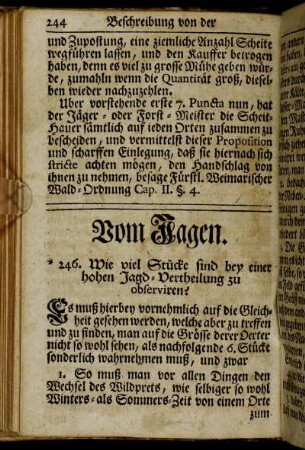 244 Beschreibung von der
und Zupostung, eine ziemliche Anzahl Scheite
wegführen lassen, und den Kauffer betrogen
haben, denn es viel zu grosse Mühe geben wür-
de, zumahln wenn die Quantität groß, diesel-
ben wieder nachzuzehlen.
Uber vorstehende erste 7. Puncta nun, hat
der Jäger- oder Forst-Meister die Scheit-
Hauer sämtlich auf ieden Orten zusammen zu
bescheiden, und vermittelst dieser Proposition
und scharffen Einlegung, daß sie hiernach sich
stricte achten mögen, den Handschlag von
ihnen zu nehmen, besage Fürstl. Weimarischer
Wald-Ordnung Cap. II. §. 4.
Vom Jagen.
* 246. Wie viel Stücke sind bey einer
hohen Jagd-Vertheilung zu
observiren?
Es muß hierbey vornehmlich auf die Gleich-
heit gesehen werden, welche aber zu treffen
und zu finden, man auf die Grösse derer Oerter
nicht so wohl sehen, als nachfolgende 6. Stücke
sonderlich wahrnehmen muß, und zwar
1. So muß man vor allen Dingen den
Wechsel des Wildprets, wie selbiger so wohl
Winters- als Sommers-Zeit von einem Orte
zum